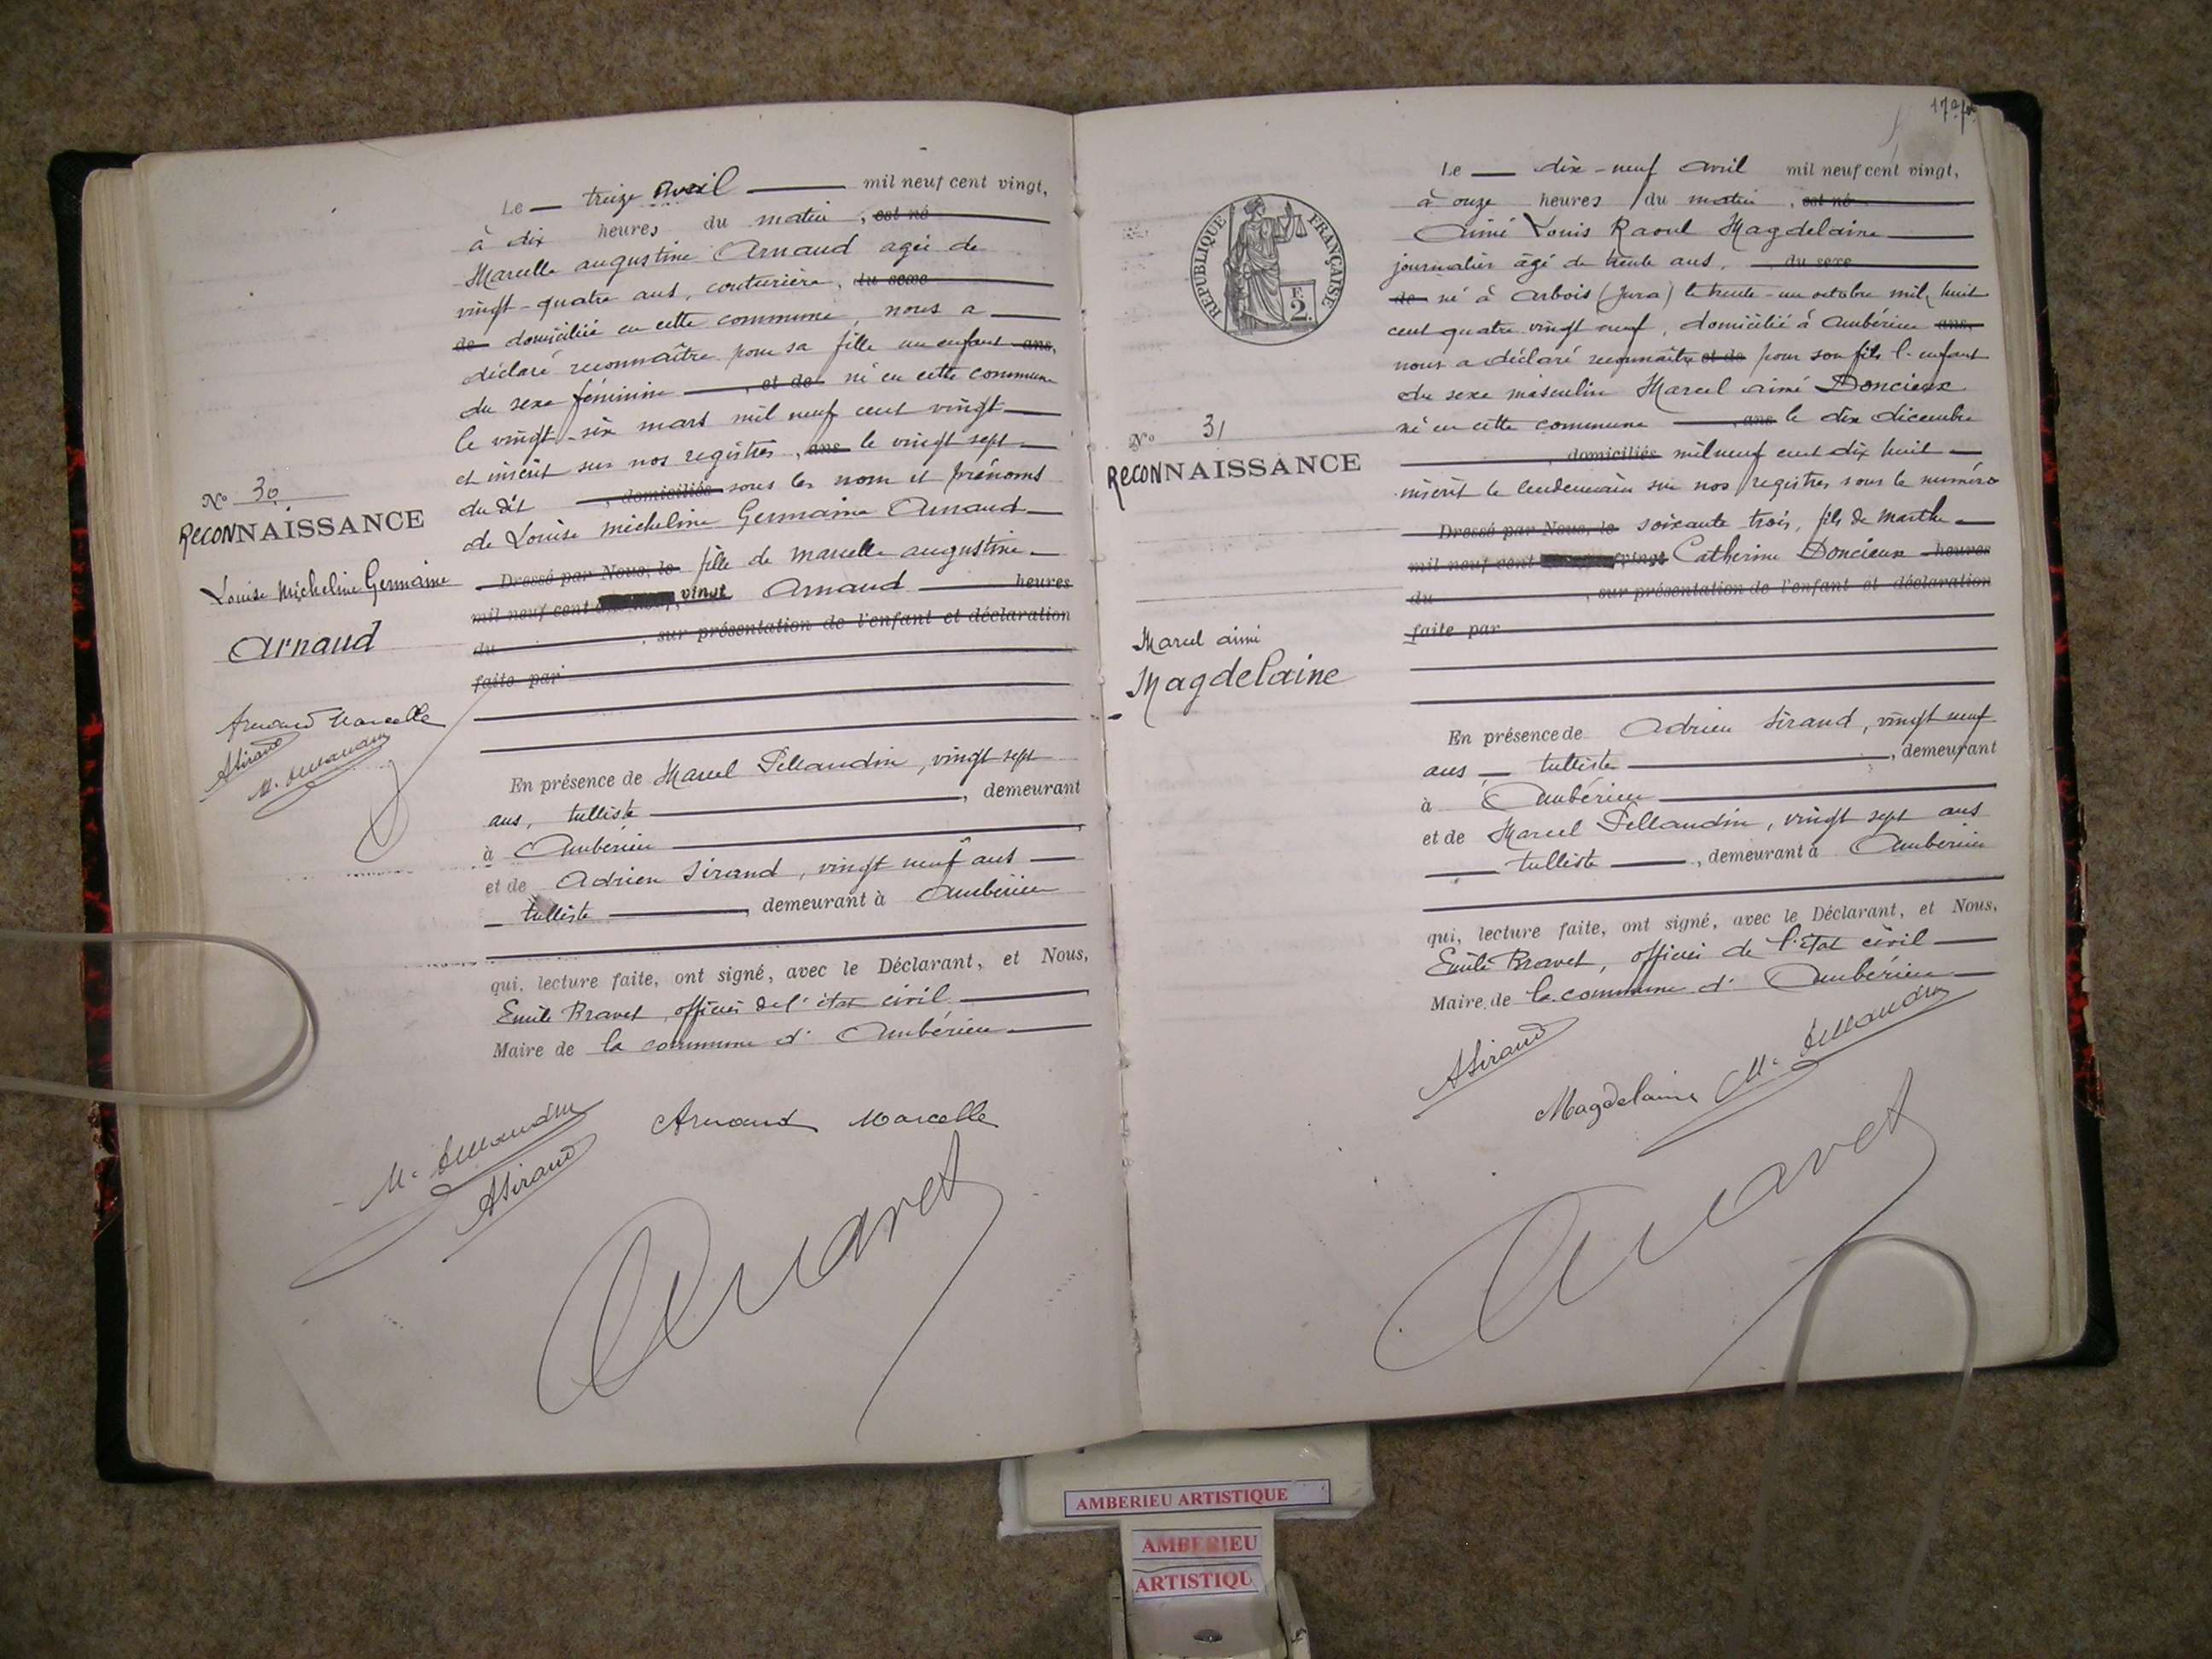 Le treize Avril mil neuf cent vingt,
à dix heures du matin, est né
Marcelle augustine Arnaud agée de
vingt-quatre ans, couturière, du sexe
de domiciliée en cette commune, nous a
déclaré reconnaître pour sa fille un enfant ans,
du sexe féminin, et de né en cette commune
le vingt-six mars mil neuf cent vingt
et inscrit sur nos registres, ans le vingt sept
du dit, domiciliés sous les nom et prénoms
de Louise Micheline Germaine Arnaud
Dressé par Nous, le fille de Marcelle augustine
mil neuf cent vingt Arnaud heures
du, sur présentation de l'enfant et déclaration
faite par
No 30
RECONNAISSANCE
Louise Micheline Germaine
Arnaud
Arnaud Marcelle
ASirand
En présence de Marcel Pellaudin, vingt sept
ans, tulliste, demeurant
à Ambérieu
et de Adrien Sirand, vingt neuf ans
tulliste, demeurant à Ambérieu
qui, lecture faite, ont signé, avec le Déclarant, et Nous,
Emile Bravet, officier de l'état civil
Maire de la commune d' Ambérieu
Arnaud Marcelle
ASirand
Bravet
Le dix-neuf avril mil neuf cent vingt,
à onze heures du matin, est né
Aimé Louis Raoul Magdelaine
journalier âgé de trente ans, du sexe
de né à Arbois (Jura) le trente-un octobre mil huit
cent quatre vingt neuf, domicilié à Ambérieu ans,
nous a déclaré reconnaître et de pour son fils l'enfant
du sexe masculin Marcel aimé Doncieux
né en cette commune, ans le dix décembre
, domiciliés mil neuf cent dix huit
inscrit le lendemain sur nos registres sous le numéro
Dressé par Nous, le soixante trois, fils de Marthe
mil neuf cent vingt Catherine Doncieux heures
du, sur présentation de l'enfant et déclaration
faite par
RÉPUBLIQUE FRANÇAISE
F. 2.
No 31
RECONNAISSANCE
Marcel aimé
Magdelaine
En présence de Adrien Sirand, vingt neuf
ans tulliste, demeurant
à Ambérieu
et de Marcel Pellaudin, vingt sept ans
tulliste, demeurant à Ambérieu
qui, lecture faite, ont signé, avec le Déclarant, et Nous,
Emile Bravet, officier de l'état civil
Maire de la commune d' Ambérieu
ASirand
Magdelaine
Bravet
AMBERIEU ARTISTIQUE
AMBERIEU
ARTISTIQU